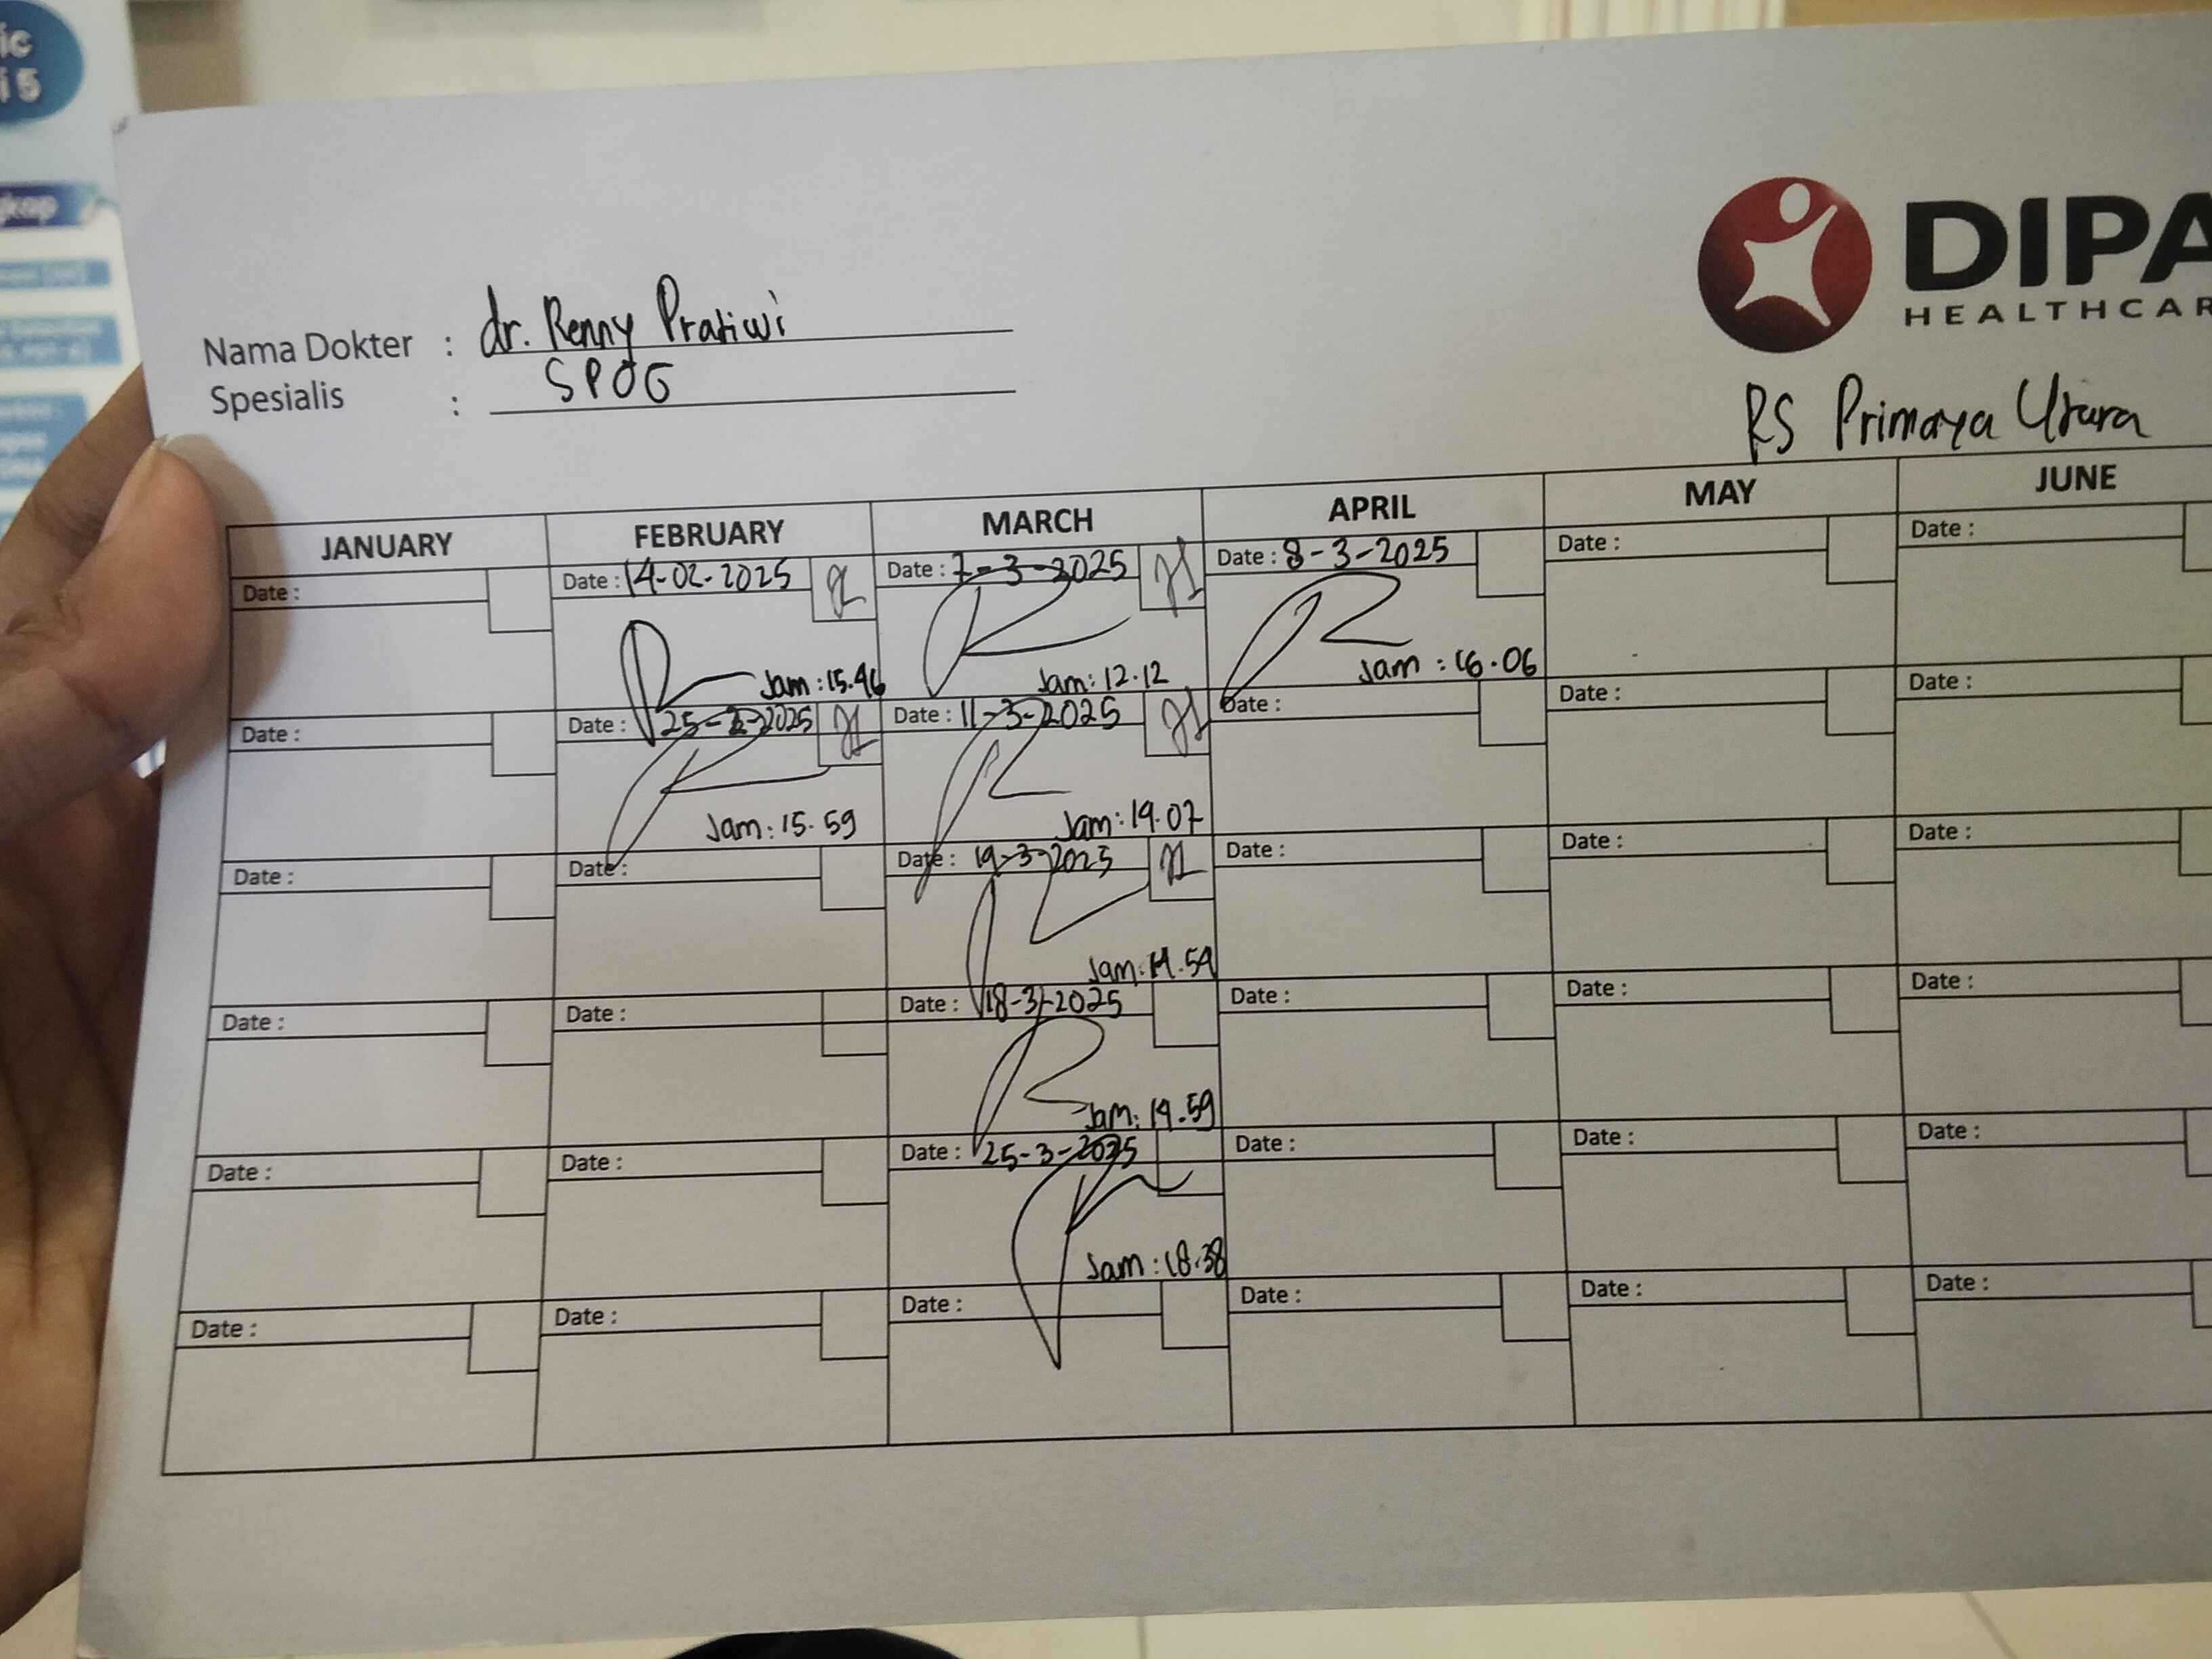 ic
i 5
gkap
DIPA
HEALTHCAR
Nama Dokter : dr. Renny Pratiwi
Spesialis : SPOG
RS Primaya Utara
JANUARY FEBRUARY MARCH APRIL MAY JUNE
Date : Date : 14-02-2025 Date : 7-3-2025 Date : 8-3-2025 Date : Date :
Jam : 15.46 Jam : 12.12 Jam : 16.06
Date : Date : 25-2-2025 Date : 11-3-2025 Date : Date : Date :
Jam : 15.59 Jam : 19.07
Date : Date : Date : 19-3-2025 Date : Date : Date :
Jam :
Date : Date : Date : 18-3-2025 Date : Date : Date :
Jam : 19.59
Date : Date : Date : 25-3-2025 Date : Date : Date :
Jam : 18.38
Date : Date : Date : Date : Date : Date :